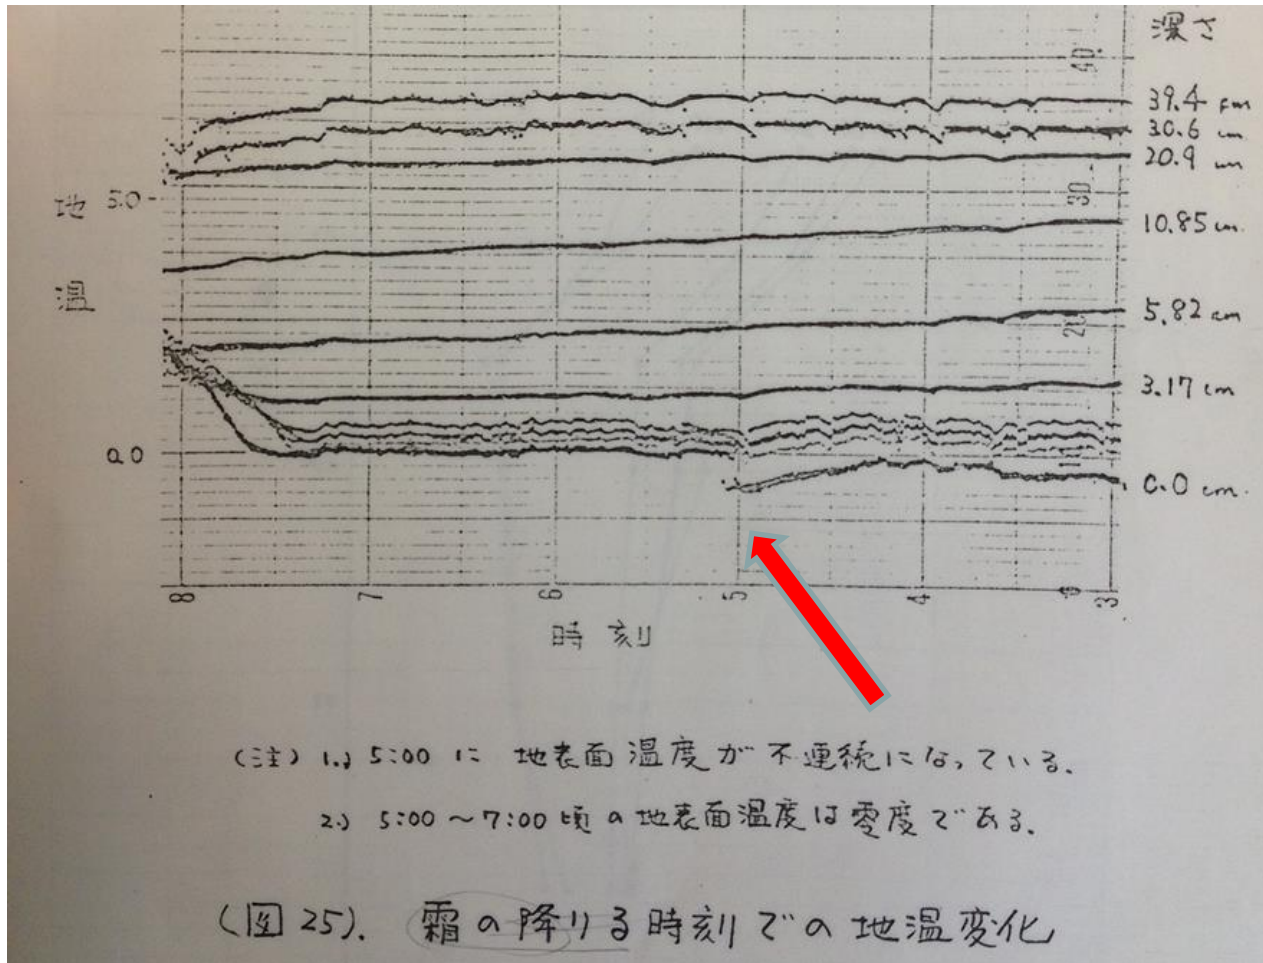 深さ
40.
39.4 cm
30.6 cm
20.9 cm
地 5.0 -
30
10.85 cm.
温
5.82 cm
20
3.17 cm
0.0
0.0 cm.
8 7 6 5 4 3
時刻
(注) 1.) 5:00 に 地表面温度が不連続になっている.
2.) 5:00 ~ 7:00 頃の地表面温度は零度である.
(図 25). 霜の降りる時刻での地温変化